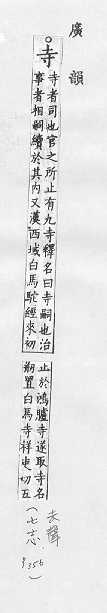 廣韻
。寺
寺者司也官之所止有九寺釋名曰寺嗣也治
事者相嗣續於其內又漢西域白馬駞經來初
止於鴻臚寺遂取寺名
刱置白馬寺祥吏切五
去聲
(七志
p.356